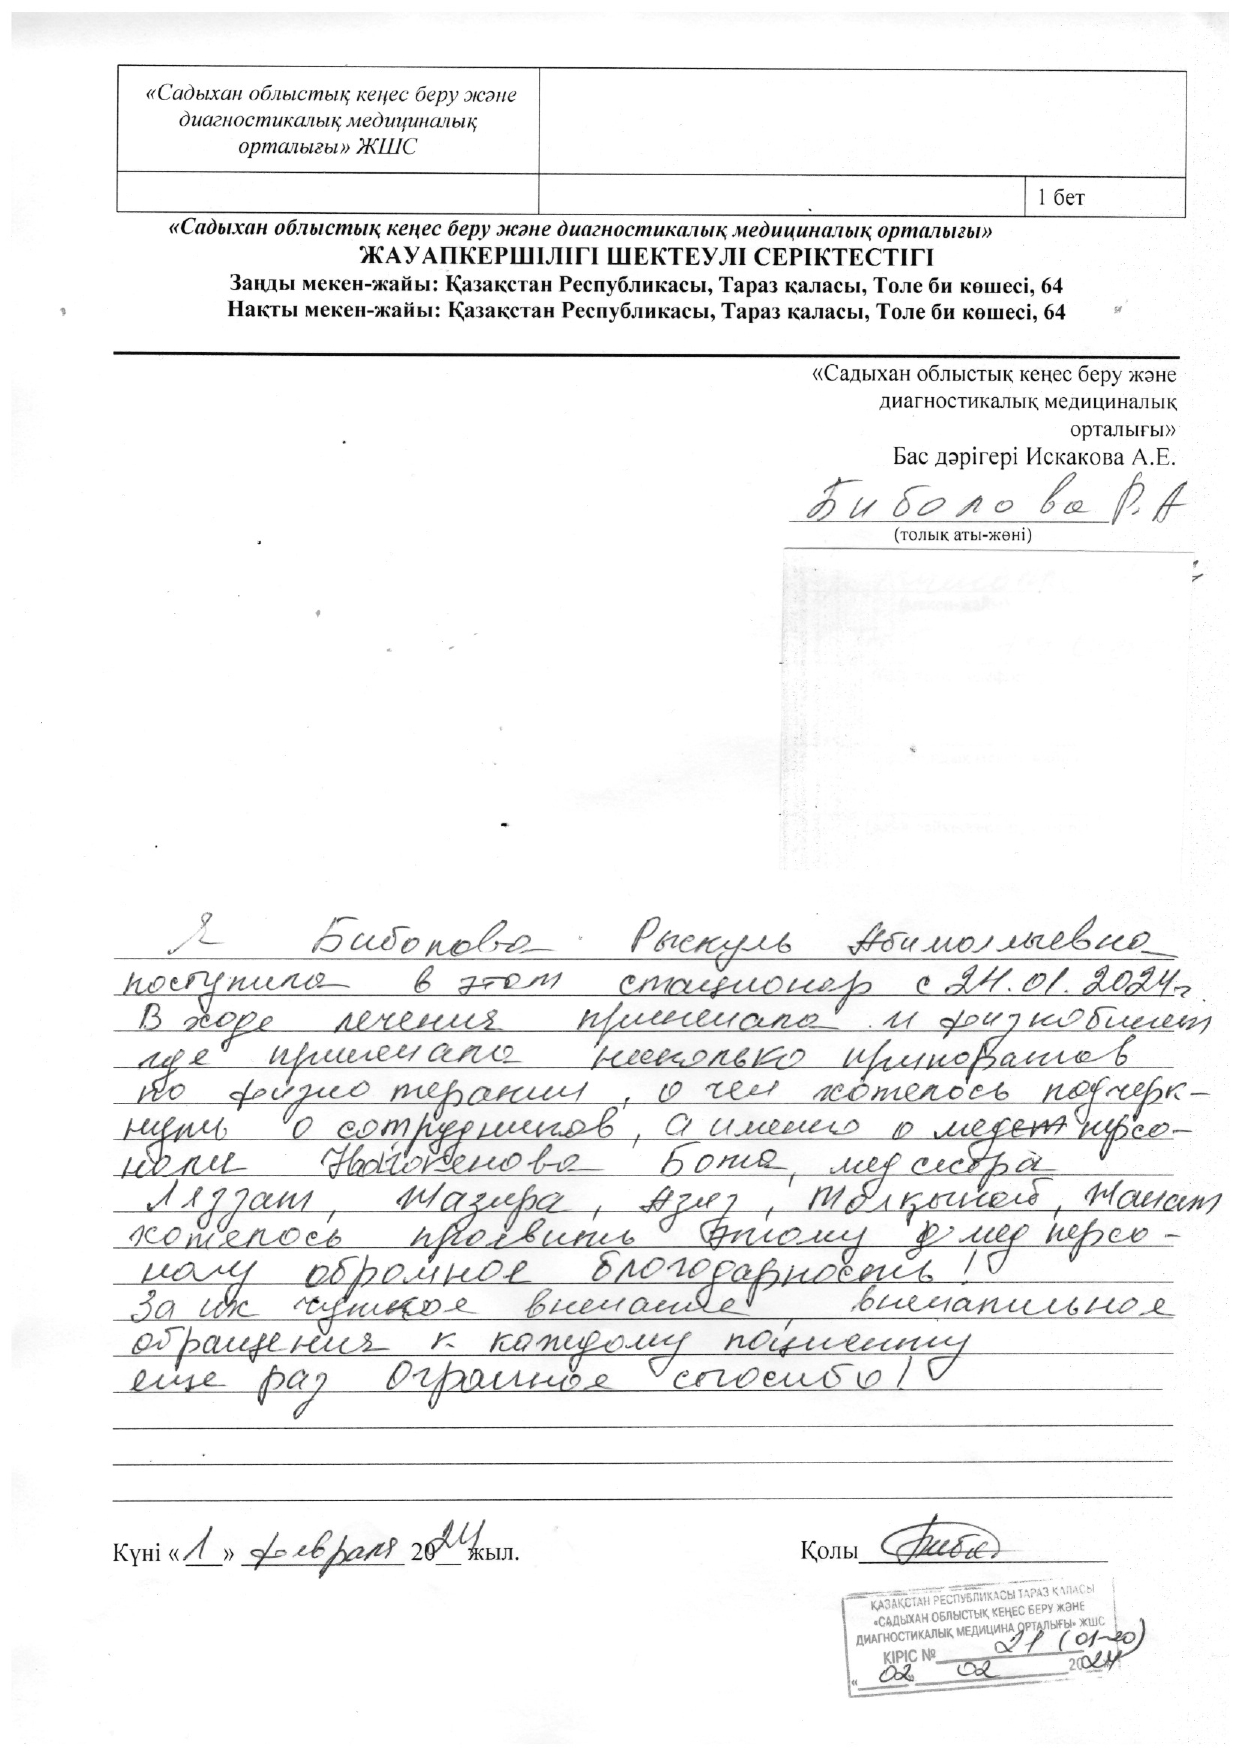 «Садыхан облыстық кеңес беру және
диагностикалық медициналық
орталығы» ЖШС
1 бет
«Садыхан облыстық кеңес беру және диагностикалық медициналық орталығы»
ЖАУАПКЕРШІЛІГІ ШЕКТЕУЛІ СЕРІКТЕСТІГІ
Заңды мекен-жайы: Қазақстан Республикасы, Тараз қаласы, Толе би көшесі, 64
Нақты мекен-жайы: Қазақстан Республикасы, Тараз қаласы, Толе би көшесі, 64
«Садыхан облыстық кеңес беру және
диагностикалық медициналық
орталығы»
Бас дәрігері Искакова А.Е.
Биболова Р.А
(толық аты-жөні)
Я Биболова Рыскуль Абимоллыевна
поступила в этом стационар с 24.01.2024г
В ходе лечения принимала и физкобинет
где принимала несколько припоратов
по физио терапии, о чем хотелось подчерк-
нуть о сотрудников, а именно о мед персо-
нали Бота, мед сестра
Ляззат, Жазира, Азиз, Толқынай, Жанат
хотелось проявить этому мед персо-
налу обромное благодарность!
За их чуткое внемание, внемательное
обращения к каждому пациенту
еще раз Огромное спосибо!
Күні «1» февраля 2024 жыл.
Қолы
ҚАЗАҚСТАН РЕСПУБЛИКАСЫ ТАРАЗ ҚАЛАСЫ
«САДЫХАН ОБЛЫСТЫҚ КЕҢЕС БЕРУ ЖӘНЕ
ДИАГНОСТИКАЛЫҚ МЕДИЦИНА ОРТАЛЫҒЫ» ЖШС
КІРІС № 21 (01-20)
«02 02 2024